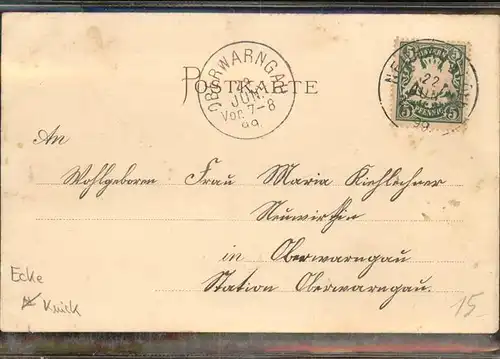 POSTKARTE
OBERWARNGAU
23
JUN.
Vor. 7-8
99.
22
JUN
99.
5 BAYERN 5
5 PFENNIG 5
An
Wohlgeboren Frau Maria Kiehlechner
Neuwirthin
in Oberwarngau
Station Oberwarngau.
Ecke
Knick
15